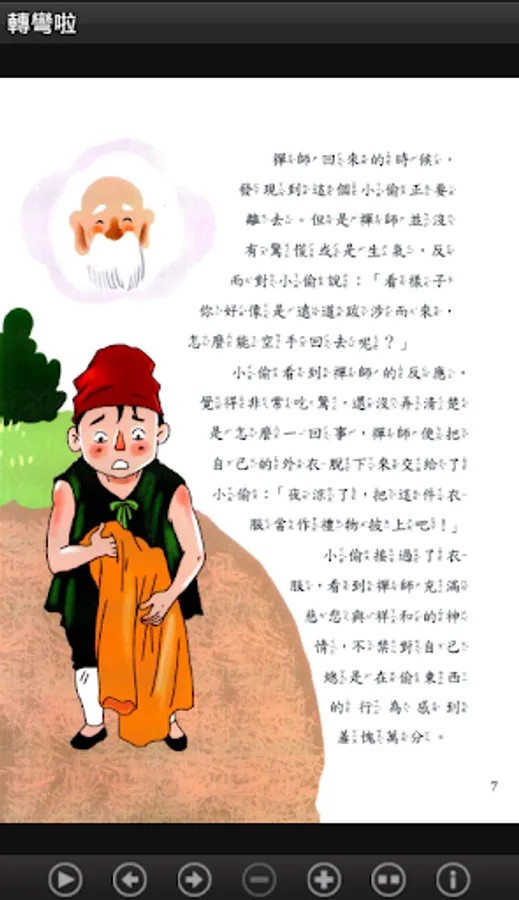 轉彎啦
禪師回來的時候，
發現到這個小偷正要
離去。但是禪師並沒
有驚慌或是生氣，反
而對小偷說：「看樣子
你好像是遠道跋涉而來，
怎麼能空手回去呢？」
小偷看到禪師的反應，
覺得非常吃驚，還沒弄清楚
是怎麼一回事，禪師便把
自己的外衣脫下來交給了
小偷：「夜涼了，把這件衣
服當作禮物披上吧！」
小偷接過了衣
服，看到禪師充滿
慈悲與祥和的神
情，不禁對自己
總是在偷東西
的行為感到
羞愧萬分。
7